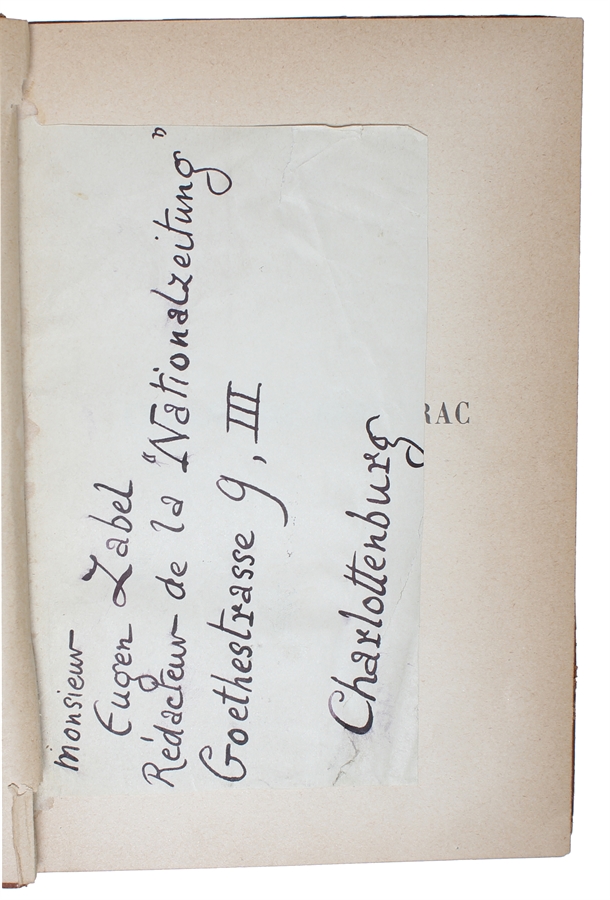 Monsieur
Eugen Zabel
Rédacteur de la "Nationalzeitung"
Goethestrasse 9, III
Charlottenburg
RAC